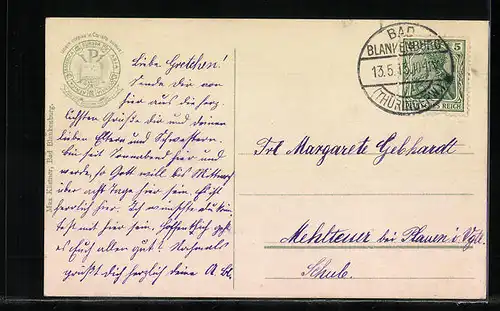 Liebe Gretchen!
Sende dir von
hier aus die herz-
lichsten Grüße dir und deinen
lieben Eltern und Schwestern.
Bin seit Sonnabend hier und
werde, so Gott will bis Mittwoch
über acht Tage hier sein. Es ist
herrlich hier. Ich wünschte du könn-
test mit hier sein. Hoffentlich geht
es Euch allen gut! Nochmals
grüßt dich herzlich deine A.
Max Kistner, Bad Blankenburg.
BAD
BLANKENBURG
13.5.13
(THÜRINGERW.)
5
REICH
Frl Margarete Gebhardt
Mehlteuer bei Plauen i. Vgtl.
Schule.